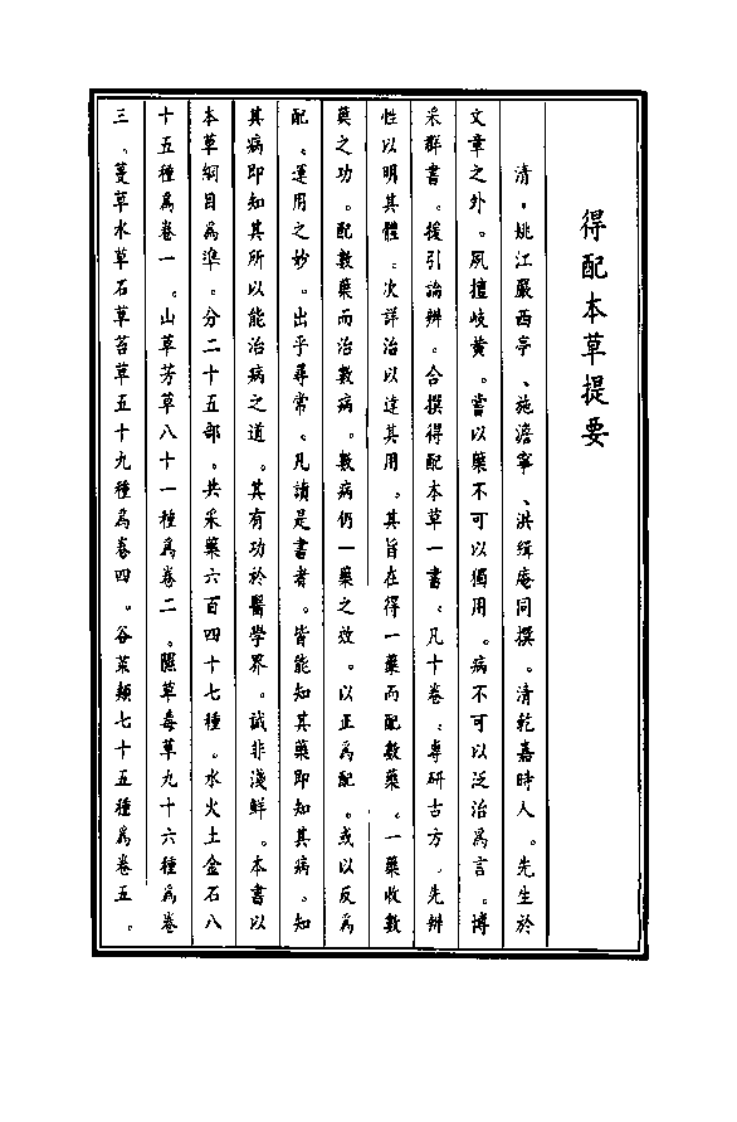 得配本草提要
清，姚江嚴西亭、施澹寧、洪緝庵同撰。清乾嘉時人。先生於
文章之外。夙擅岐黄。嘗以藥不可以獨用。病不可以泛治爲言。博
采群書。援引論辨。合撰得配本草一書。凡十卷。專研古方。先辨
性以明其體。次詳治以達其用。其旨在得一藥而配數藥。一藥收數
藥之功。配數藥而治數病。數病仍一藥之效。以正爲配。或以反爲
配。運用之妙。出乎尋常。凡讀是書者。皆能知其藥即知其病。知
其病即知其所以能治病之道。其有功於醫學界。誠非淺鮮。本書以
本草綱目爲準。分二十五部。共采藥六百四十七種。水火土金石八
十五種爲卷一。山草芳草八十一種爲卷二。隰草毒草九十六種爲卷
三。蔓草水草石草苔草五十九種爲卷四。谷菜類七十五種爲卷五。